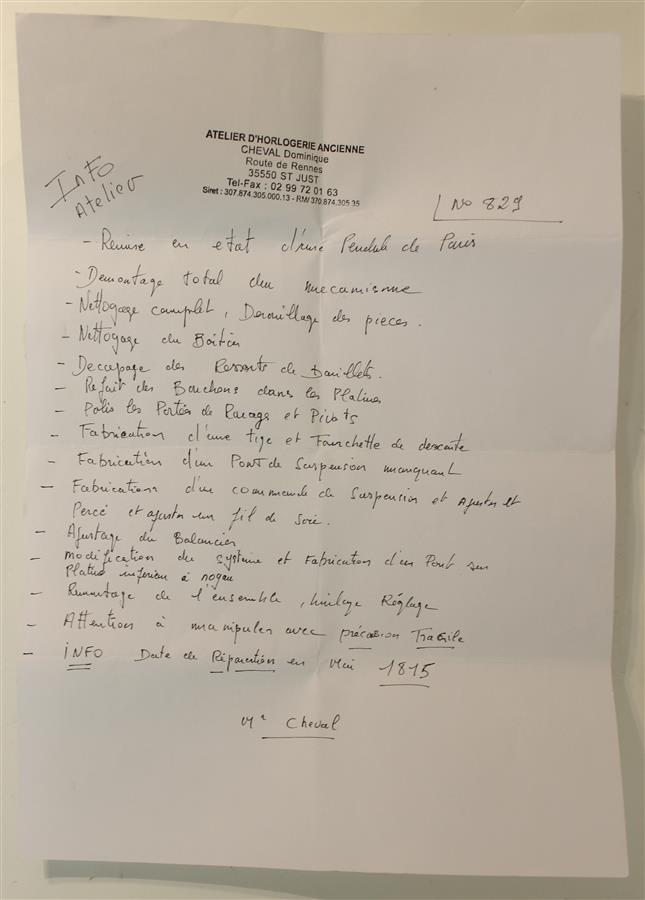 ATELIER D'HORLOGERIE ANCIENNE
CHEVAL Dominique
Route de Rennes
35550 ST JUST
Tel-Fax : 02 99 72 01 63
Siret : 307.874.305.000.13 - RM/ 370.874.305 35
InFo
Atelier
No 829
- Remise en etat d'une Pendule de Paris
- Demontage total du mecamisme
- Nettogage complet, Derouillage des pieces.
- Nettogage du Boitier
- Decapage des Ressorts de Barillets.
- Refait des Bouchons dans les Platines
- Polis les Portées de Pivots et Pivots
- Fabrication d'une tige et Fourchette de descente
- Fabrication d'un Pont de Suspension manquant
- Fabrication d'un commande de Suspension et Ajuster et
Percé et ajuster un fil de Soie.
- Ajustage du Balancier
- modification du système et Fabrication d'un Pont sur
Platine inferieur à noyau
- Remontage de l'ensemble, huilage Réglage
- Attention à manipuler avec précaution Fragile
- iNFO Date de Réparation en Mai 1815
Mr Cheval